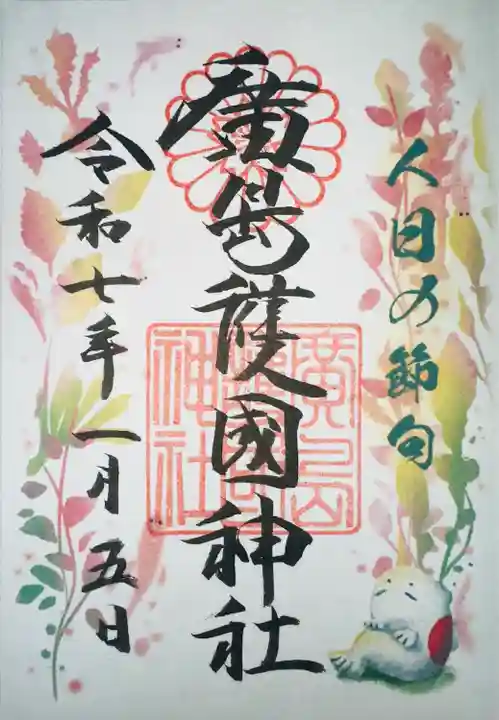 人日の節句
廣島護國神社
廣島護國神社
令和七年一月五日